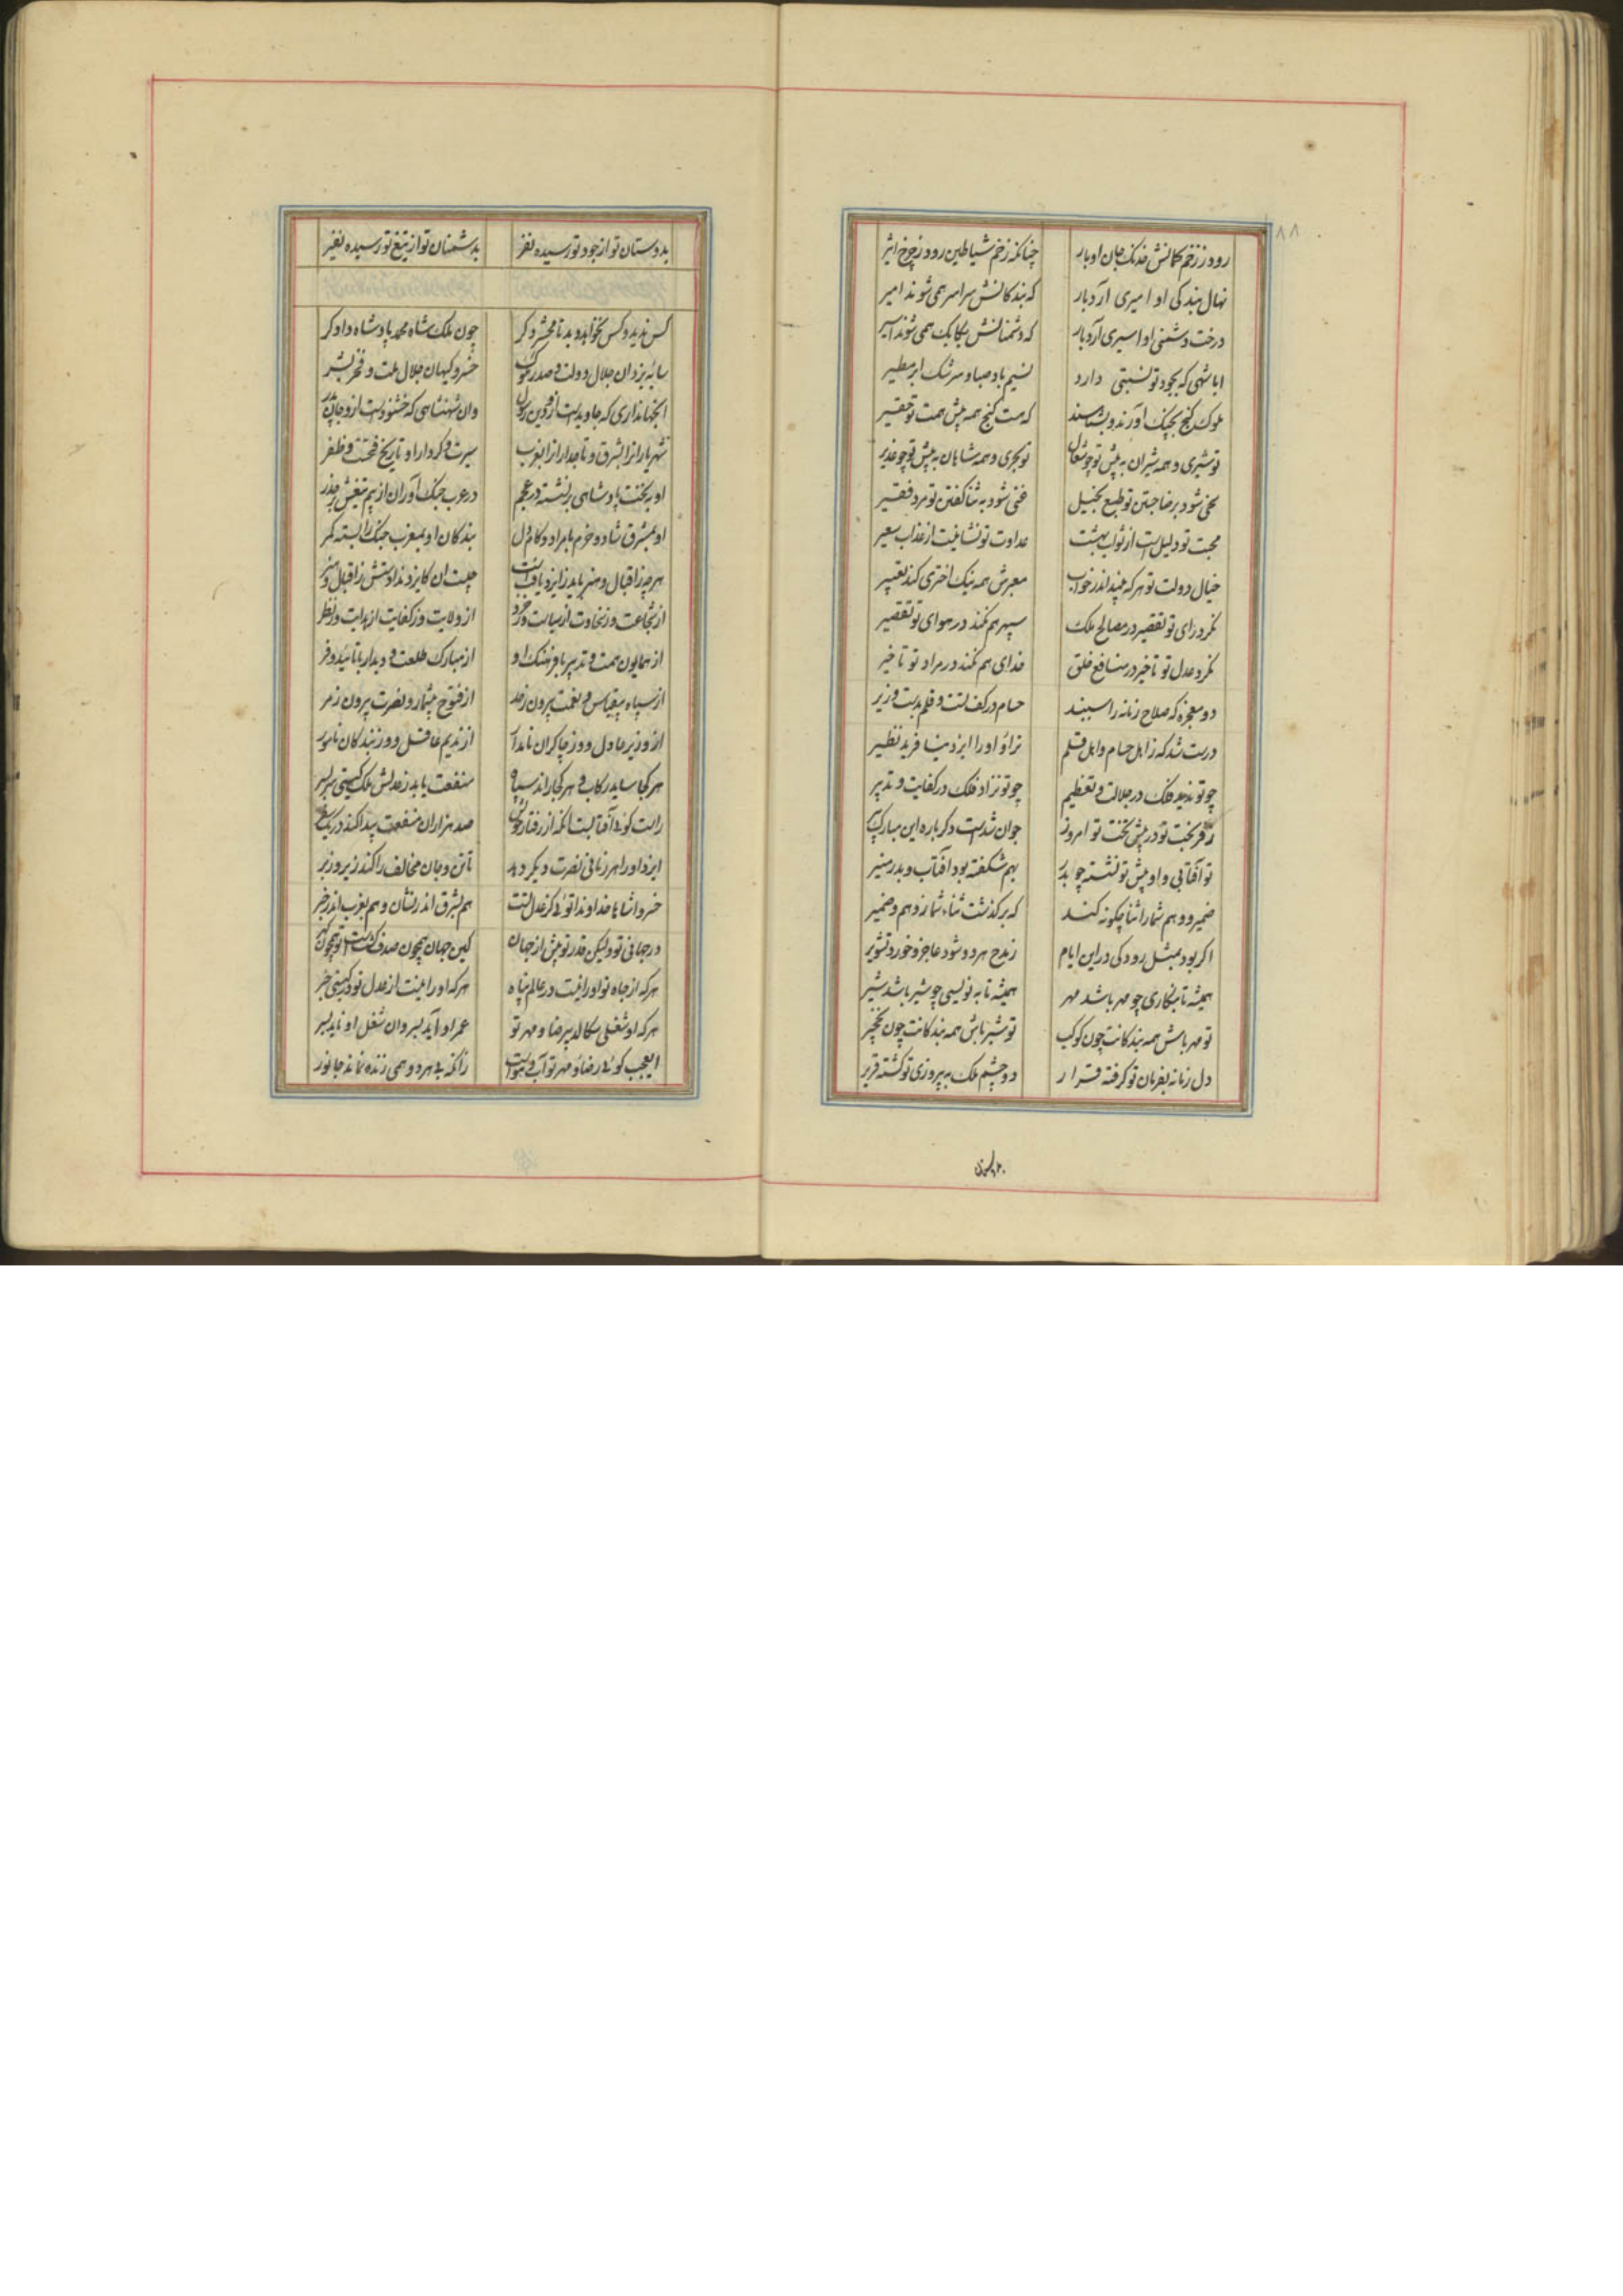 ۸۸
رود ز زخم کمانش خدنک جان اوبار چنانکه زخم شیاطین رود ز چرخ اثیر
نهال بندکی او امیری آرد بار که بندکانش سراسر همی شوند امیر
درخت دشمنی او اسیری آرد بار که دشمنانش یکایک همی شوند اسیر
ایا شهی که بجود تو نسبتی دارد نسیم باد صبا و سرشک ابر مطیر
ملوک کنج بچنک آورند و بشناسند که هست کنج همه پیش همت تو حقیر
تو شیری و همه شیران به پیش تو چو شغال تو بحری و همه شاهان به پیش تو چو غدیر
سخی شود برضا جستن تو طبع بخیل غنی شود به ثنا کفتن تو مرد فقیر
محبت تو دلیل است از ثواب بهشت عداوت تو نشانیست از عذاب سعیر
خیال دولت تو هر که بیند اندر خواب معبرش همه نیک اختری کند تعبیر
نکرد رای تو تقصیر در مصالح ملک سپهر هم نکند در هوای تو تقصیر
نکرد عدل تو تاخیر در منافع خلق خدای هم نکند در مراد تو تاخیر
دو معجزه که صلاح زمانه را سببند حسام در کف تست و قلم بدست وزیر
درست شد که ز اهل حسام و اهل قلم ترا و او را ایزد نیافرید نظیر
چو تو ندید فلک در جلالت و تعظیم چو تو نزاد فلک در کفایت و تدبیر
ز فر بخت تو در پیش تخت تو امروز جوان شدست دکر باره این مبارک پیر
تو آفتابی و او پیش تو نشسته چو بدر بهم شکفته بود آفتاب و بدر منیر
ضمیر و وهم شما را ثنا چکونه کند که بر کذشت ثناء شما ز وهم و ضمیر
اکر بود بمثل رودکی در این ایام ز مدح هر دو شود عاجز و خورد تشویر
همیشه تا بنکاری چو مهر باشد مهر همیشه تا به نویسی چو شیر باشد شیر
تو مهر باش همه بندکانت چون کوکب تو شیر باش همه بندکانت چون نخجیر
دل زمانه بفرمان تو کرفته قرار دو چشم ملک به پیروزی تو کشته قریر
بدوستان
بدوستان تو از جود تو رسیده نفر بدشمنان تو از تیغ تو رسیده نفیر
کس ندید و کس نخواهد دید تا محشر دکر چون ملک شاه محمد پادشاه دادکر
سایه یزدان جلال دولت و صدر ملوک خسرو کیهان جلال ملت و فخر بشر
آنجهانداری که جاویدست ازو دین رسول وان شهنشاهی که خشنودست ازو جان پدر
شهریارانرا بشرق و تاجدارانرا بغرب سیرت و کردار او تاریخ فتحست و ظفر
او بتخت پادشاهی بر نشسته در عجم در عرب جنک آوران از بیم تیغش بر حذر
او بمشرق شاد و خرم با مراد و کام دل بندکان او بمغرب جنک را بسته کمر
هر چه ز اقبال و هنر باید ز ایزد یافتست چیست ان کایزد ندادستش ز اقبال و هنر
از شجاعت وز سخاوت از سیاست وز خرد از ولایت وز کفایت از هدایت وز نظر
از همایون همت و تدبیر با فرهنک او از مبارک طلعت و دیدار با تائید و فر
از سپاه بیقیاس و نعمت بیرون ز حد از فتوح بیشمار و نصرت بیرون ز مر
از وزیر عادل و وز چاکران نامدار از ندیم عاقل و وز بندکان نامور
هر کجا ساید رکاب و هر کجا راند سپاه منفعت یابد ز عدلش ملک کیتی سربسر
راست کوئی آفتابست آنکه از رفتار خویش صد هزاران منفعت پیدا کند در یک سفر
ایزد او را هر زمانی نصرت دیکر دهد تا تن و جان مخالف را کند زیر و زبر
خسروا شاها خداوندا توئی کز عدل تست هم بشرق اندر نشان و هم بغرب اندر خبر
در جهانی تو ولیکن قدر تو بیش از جهان کین جهان همچون صدف کشت است تو همچون کهر
هر که از جاه تو او را نیست در عالم پناه هر که او را نیست از عدل تو در کیتی خبر
هر که او شغلی سکالد بیرضا و مهر تو عمر او آید بسر وان شغل او ناید بسر
ایعجب کوئی رضا و مهر تو آب و هواست زانکه بی هر دو همی زنده نماند جانور